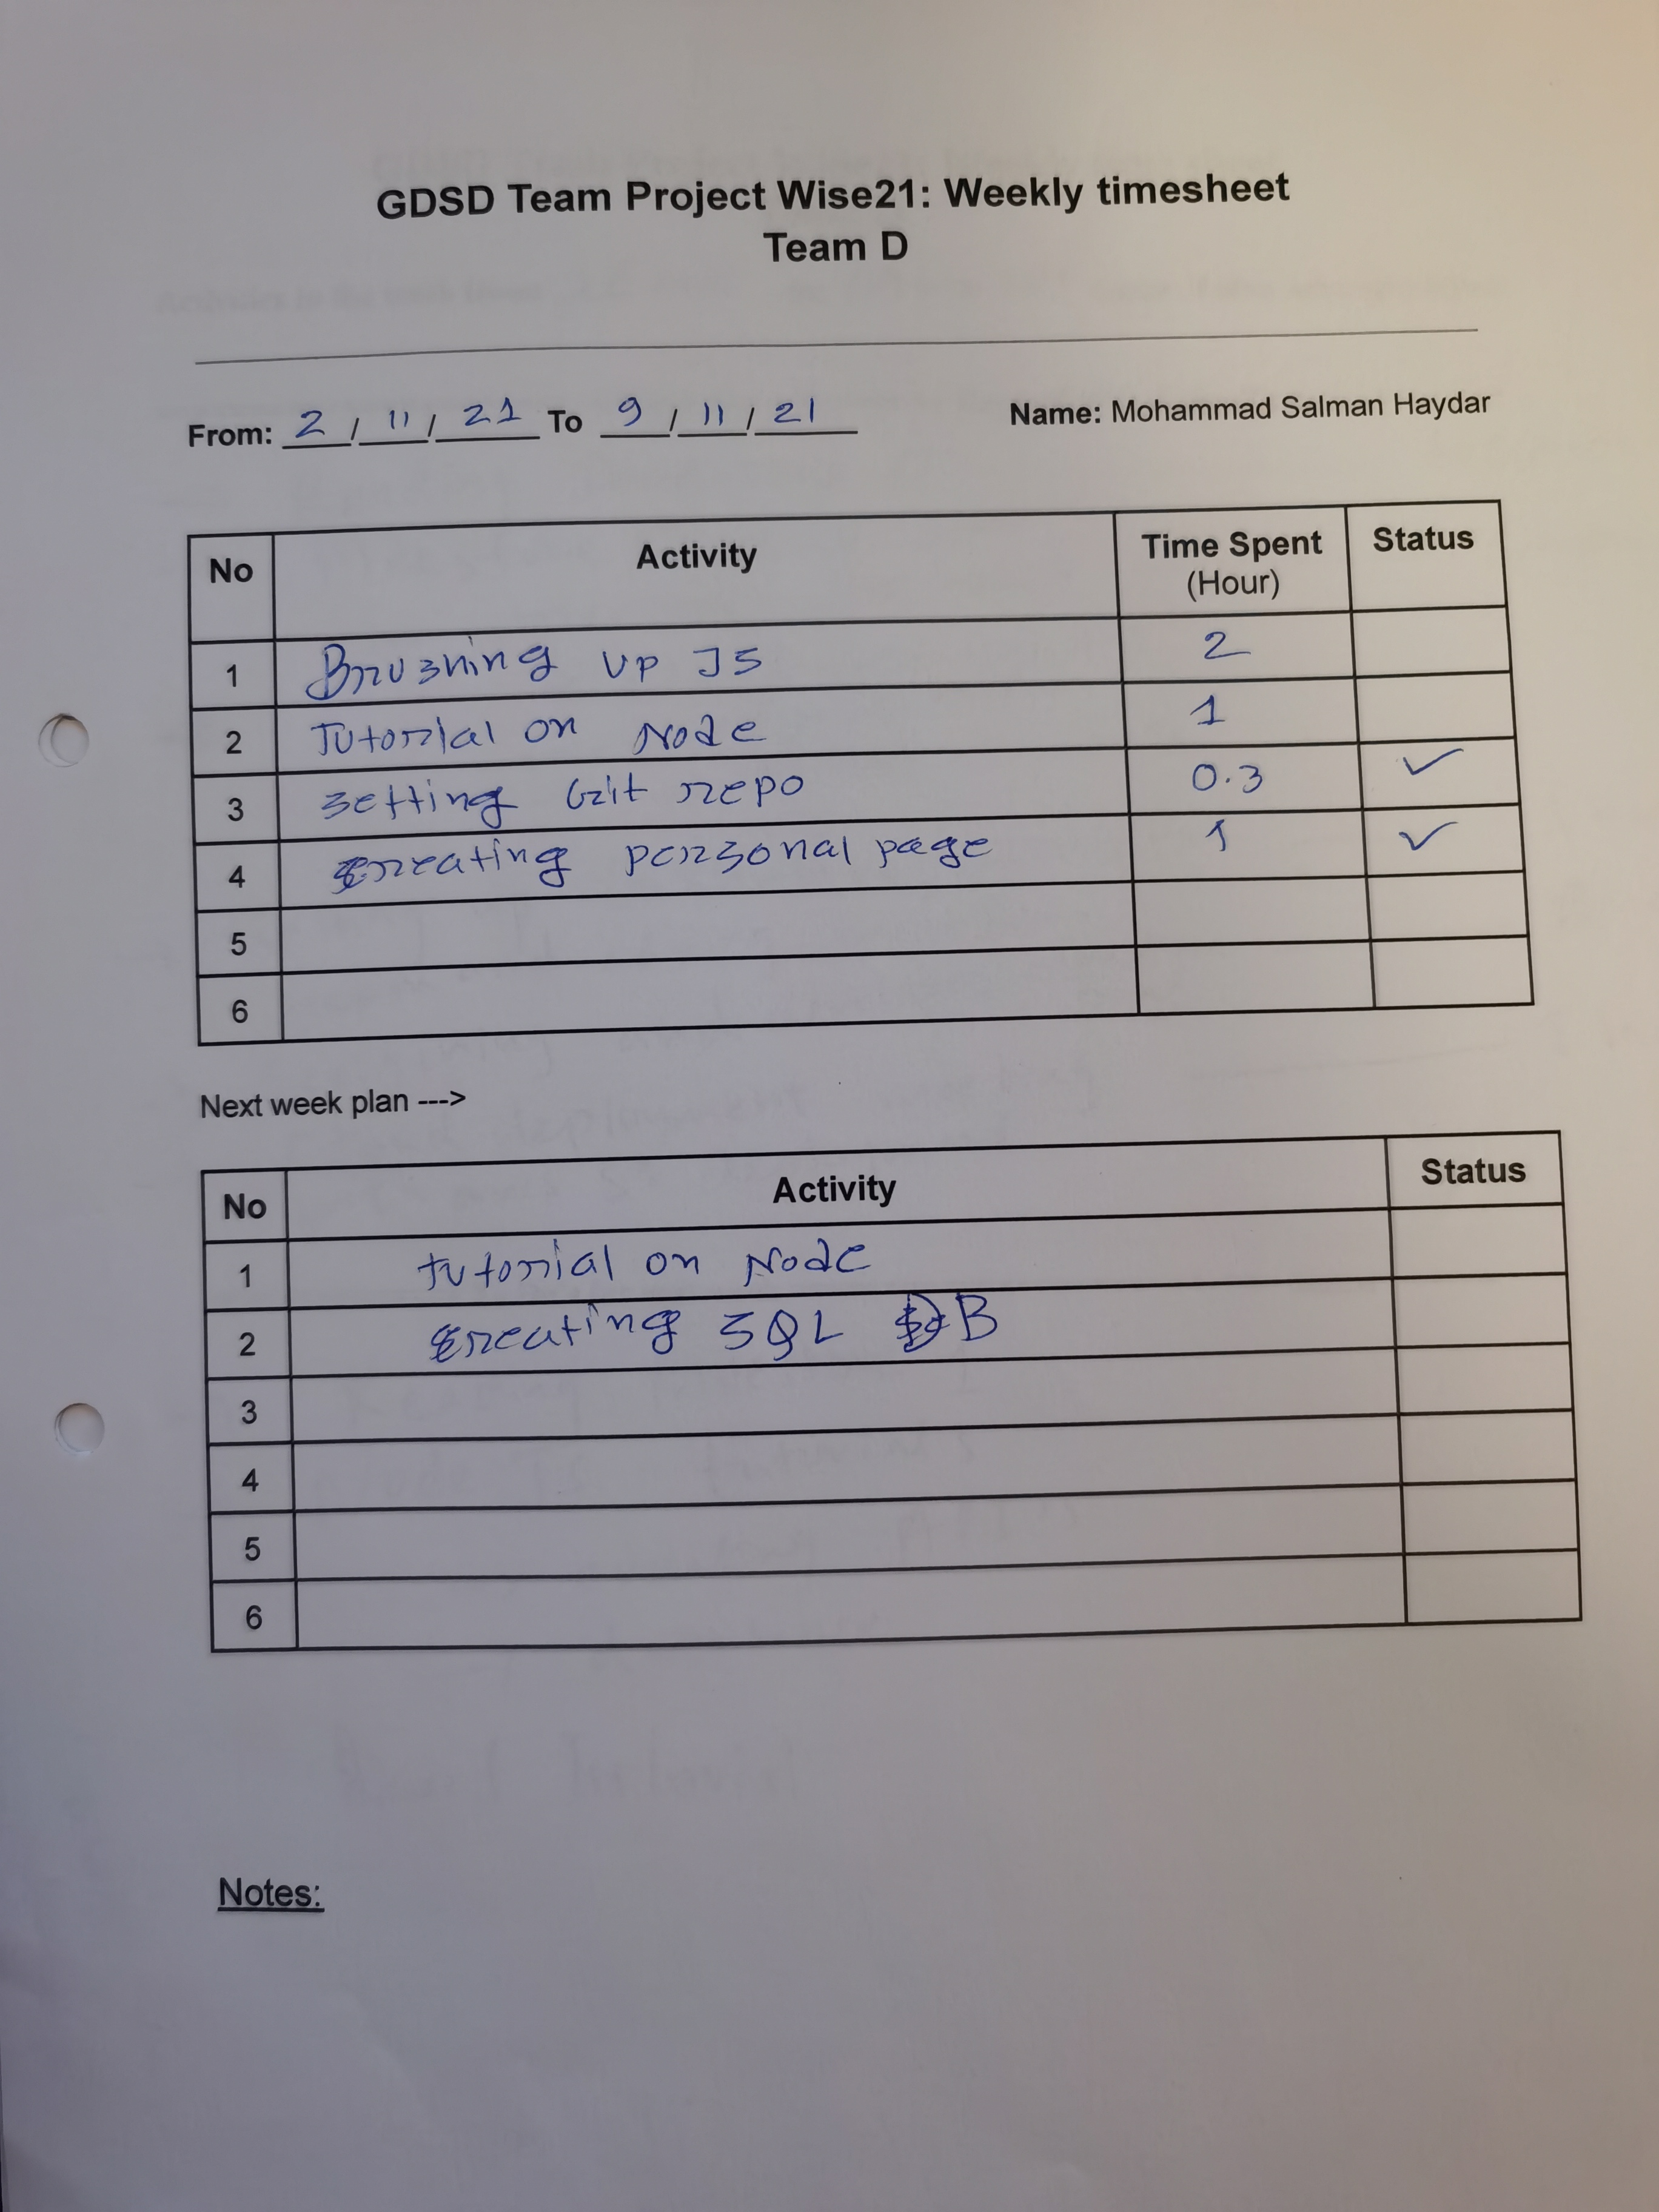 GDSD Team Project Wise21: Weekly timesheet
Team D
From: 2 / 11 / 21 To 9 / 11 / 21 Name: Mohammad Salman Haydar
No Activity Time Spent (Hour) Status
1 Brushing up JS 2
2 Tutorial on Node 1
3 setting Git repo 0.3 ✓
4 creating personal page 1 ✓
5
6
Next week plan --->
No Activity Status
1 tutorial on Node
2 creating SQL DB
3
4
5
6
Notes: